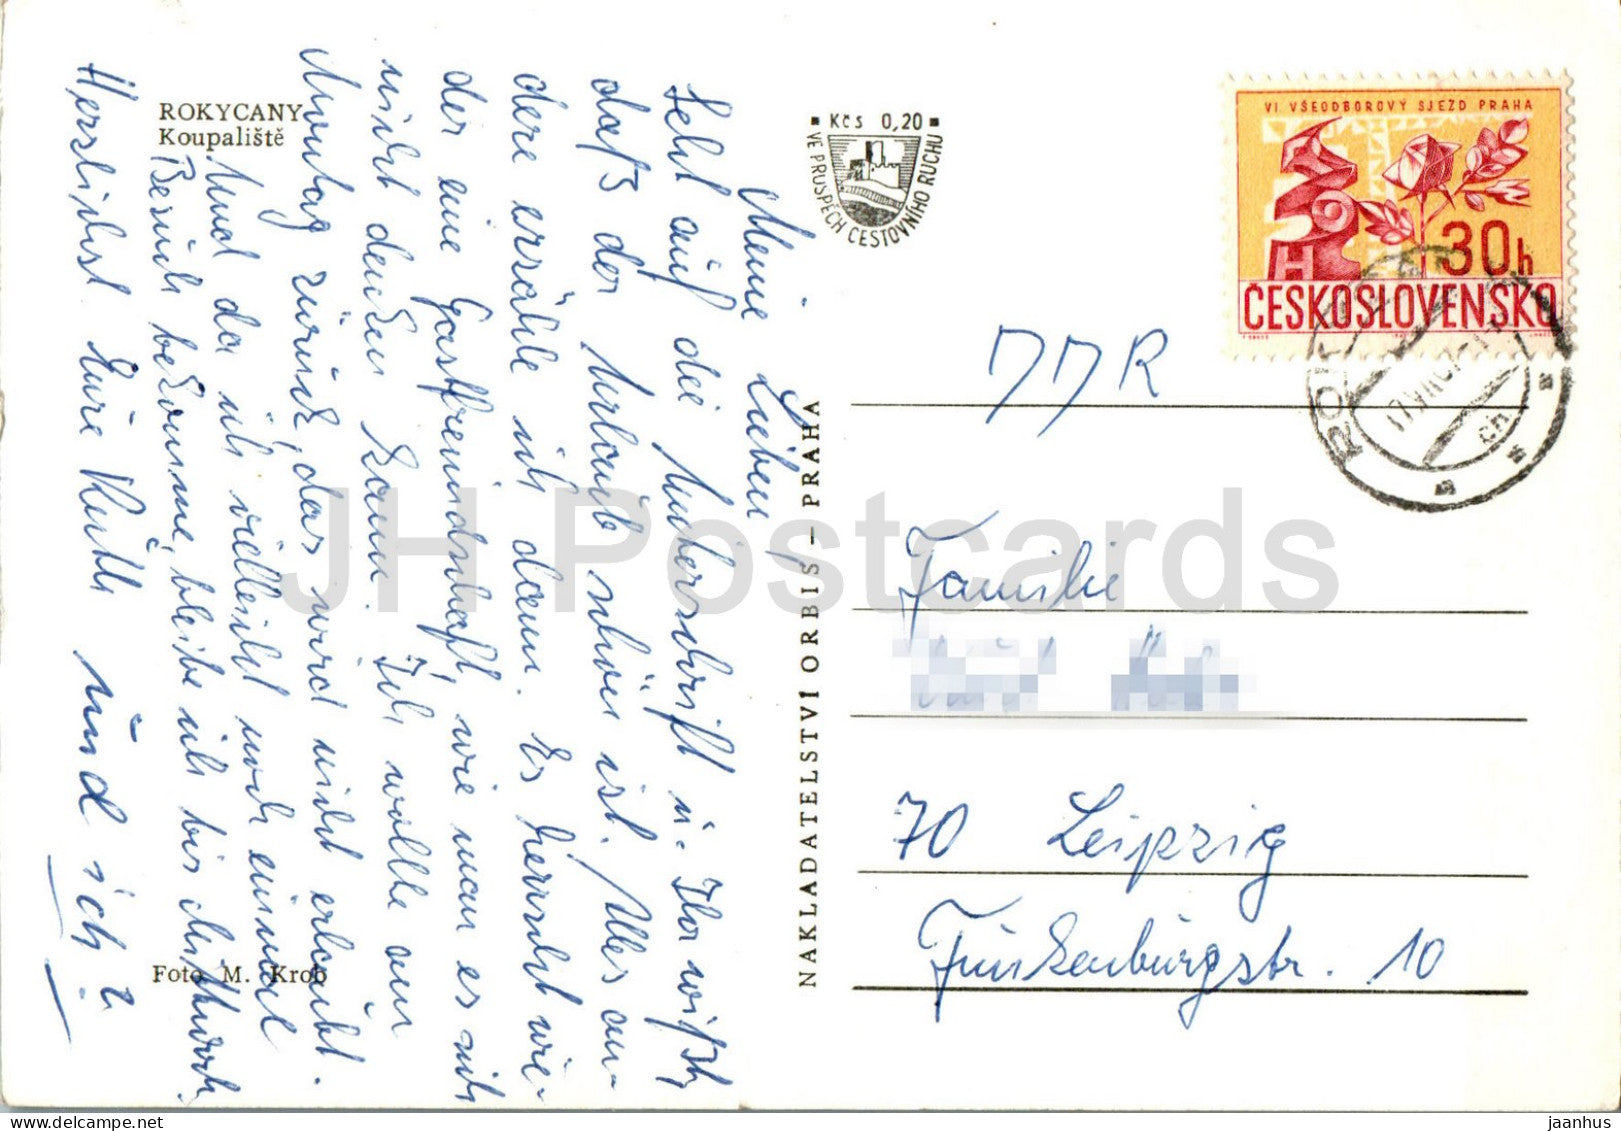 ROKYCANY
Koupaliště
Meine Lieben,
Seht auf die Überschrift u. Ihr wißt,
daß der Urlaub schön ist. Alles an-
dere erzähle ich dann. Es herrscht wie-
der eine Gastfreundschaft, wie man es sich
nicht denken kann. Ich wollte am
Montag zurück, das wird nicht erlaubt.
Und da ich vielleicht noch einmal
Besuch bekomme, bleibe ich bis Mittwoch.
Herzlichst Eure Ruth und ich?
Foto M. Krob
NAKLADATELSTVÍ ORBIS – PRAHA
Kčs 0,20
VE PROSPĚCH CESTOVNÍHO RUCHU
VI VŠEODBOROVÝ SJEZD PRAHA
30h
ČESKOSLOVENSKO
DDR
Familie
70 Leipzig
Funkenburgstr. 10
JH Postcards
jaanhus